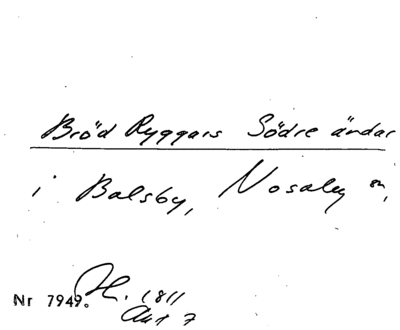 Bröd Ryggars Södre ändar
i Balsby, Nosaby sn,
H. 1811
Nr 7949. Akt 7